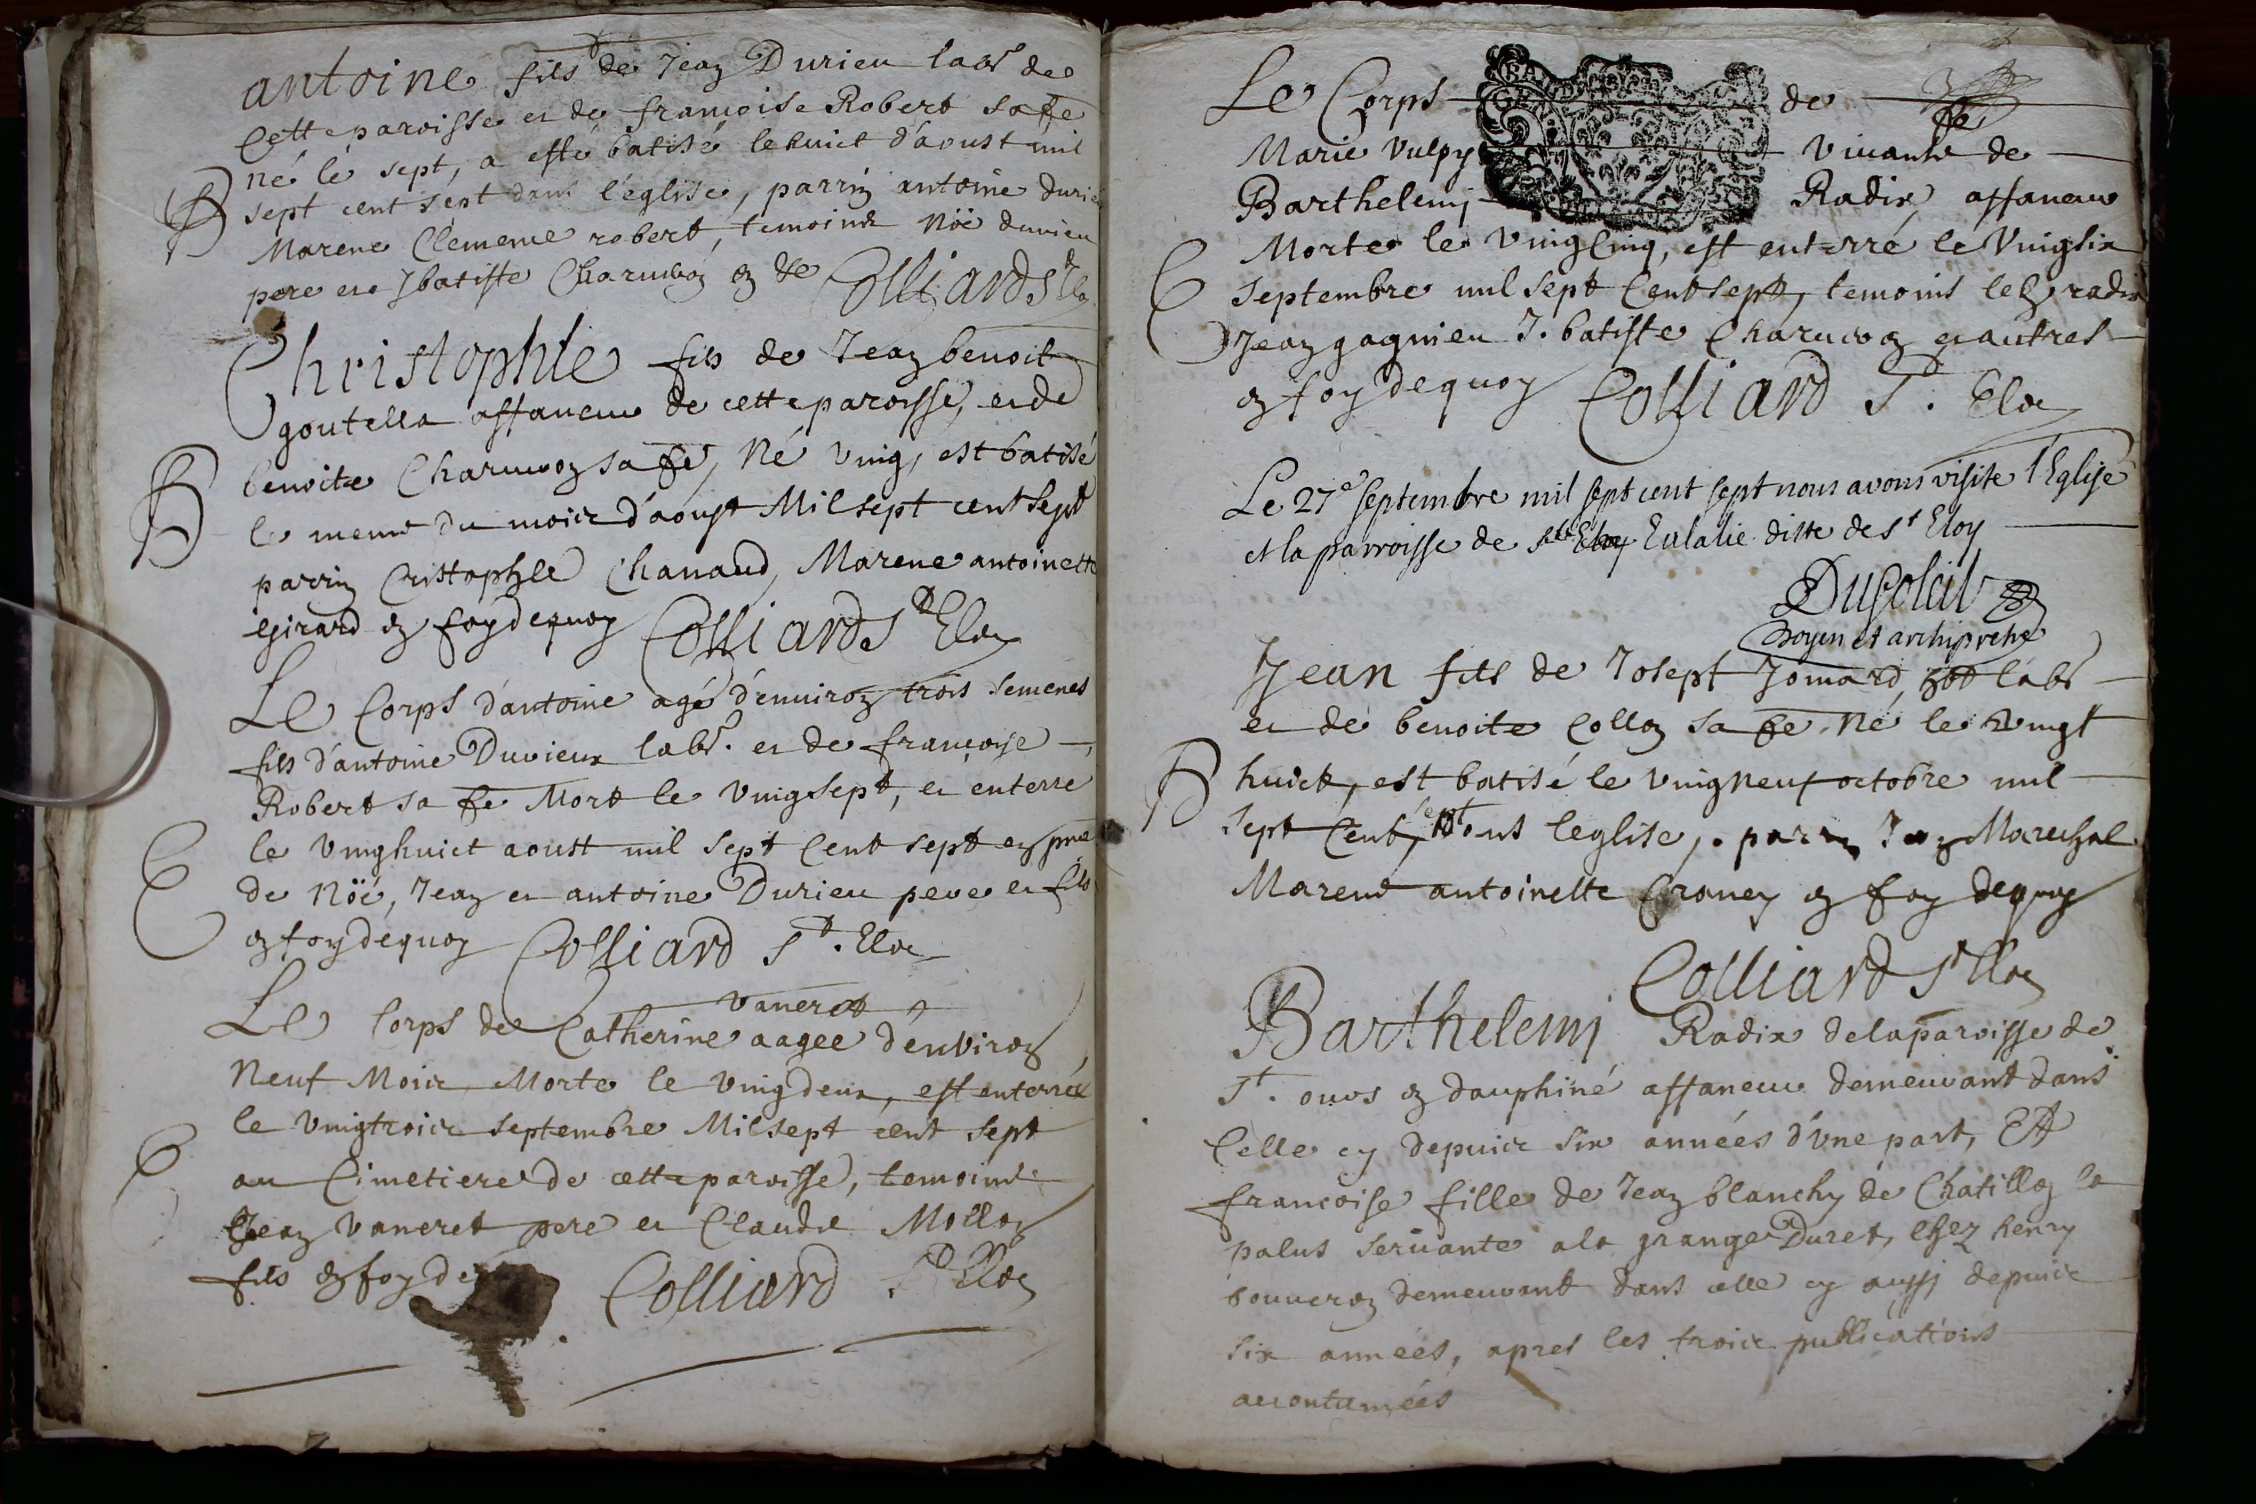 antoine fils de Jean Durieu labr de
Cette paroisse et de francoise Robert sa fe
B né le sept, a esté batisé le huict d'aoust mil
sept cent sept dans l'eglise, parrin antoine durieu
Marene Clemence robert, temoins Noë durieu
pere et Jbatiste Charuvon
Colliard St Eloy
Christophle fils de Jean benoit
goutella affaneur de cette paroisse, et de
B benoite Charuvon sa fe, Né vingt, est batisé
le meme du mois d'aoust Mil sept cent sept
parrin Cristophle Chanaud, Marene antoinette
Girard en foy dequoy Colliard St Eloy
Le Corps d'antoine agé d'enuiron trois semenes
fils d'antoine Durieux labr. et de francoise
Robert sa fe Mort le vingsept, et enterre
le vinghuict aoust mil sept cent sept en pnce
de Noë, Jean et antoine Durieu pere et fils
en foy dequoy Colliard St. Eloy
vaneret
Le Corps de Catherine aagee d'environ
Neuf Mois Morte le vingdeux, est enterrée
le vingtrois septembre Mil sept cent sept
au Cimetiere de cette paroisse, temoins
Jean vaneret pere et Claude Mollon
fils en foy de
Colliard St Eloy
Le Corps de
fe
Marie Vulpy vivante de
Barthelemi Radix, affaneur
Morte le vingcinq, est enterré le vingsix
septembre mil sept Cent sept, temoins led radix
Jean gagnieu J. batiste Charuvon et autres
en foy dequoy Colliard St. Eloy
Le 27e septembre mil sept cent sept nous avons visite l'Eglise
et la parroisse de ste Eloy Eulalie ditte de st Eloy
Dusoleil
Doyen et archipretre
Jean fils de Josept Jomard, labr
et de benoite Collon sa fe. Né le vingt
B huict, est batisé le vingneuf octobre mil
sept Cent sept dans leglise, parrin Jean Marechal
Marene antoinette en foy dequoy
Colliard St Eloy
Barthelemi Radix de la paroisse de
St. ours en dauphiné affaneur demeurant dans
Celle cy depuis six années d'vne part, Et
francoise fille de Jean blanchy de Chatillon la
palus seruante a la grange Duret, chez henry
bouueron demeurant dans celle cy aussi depuis
six années, apres les trois publications
accoutumées